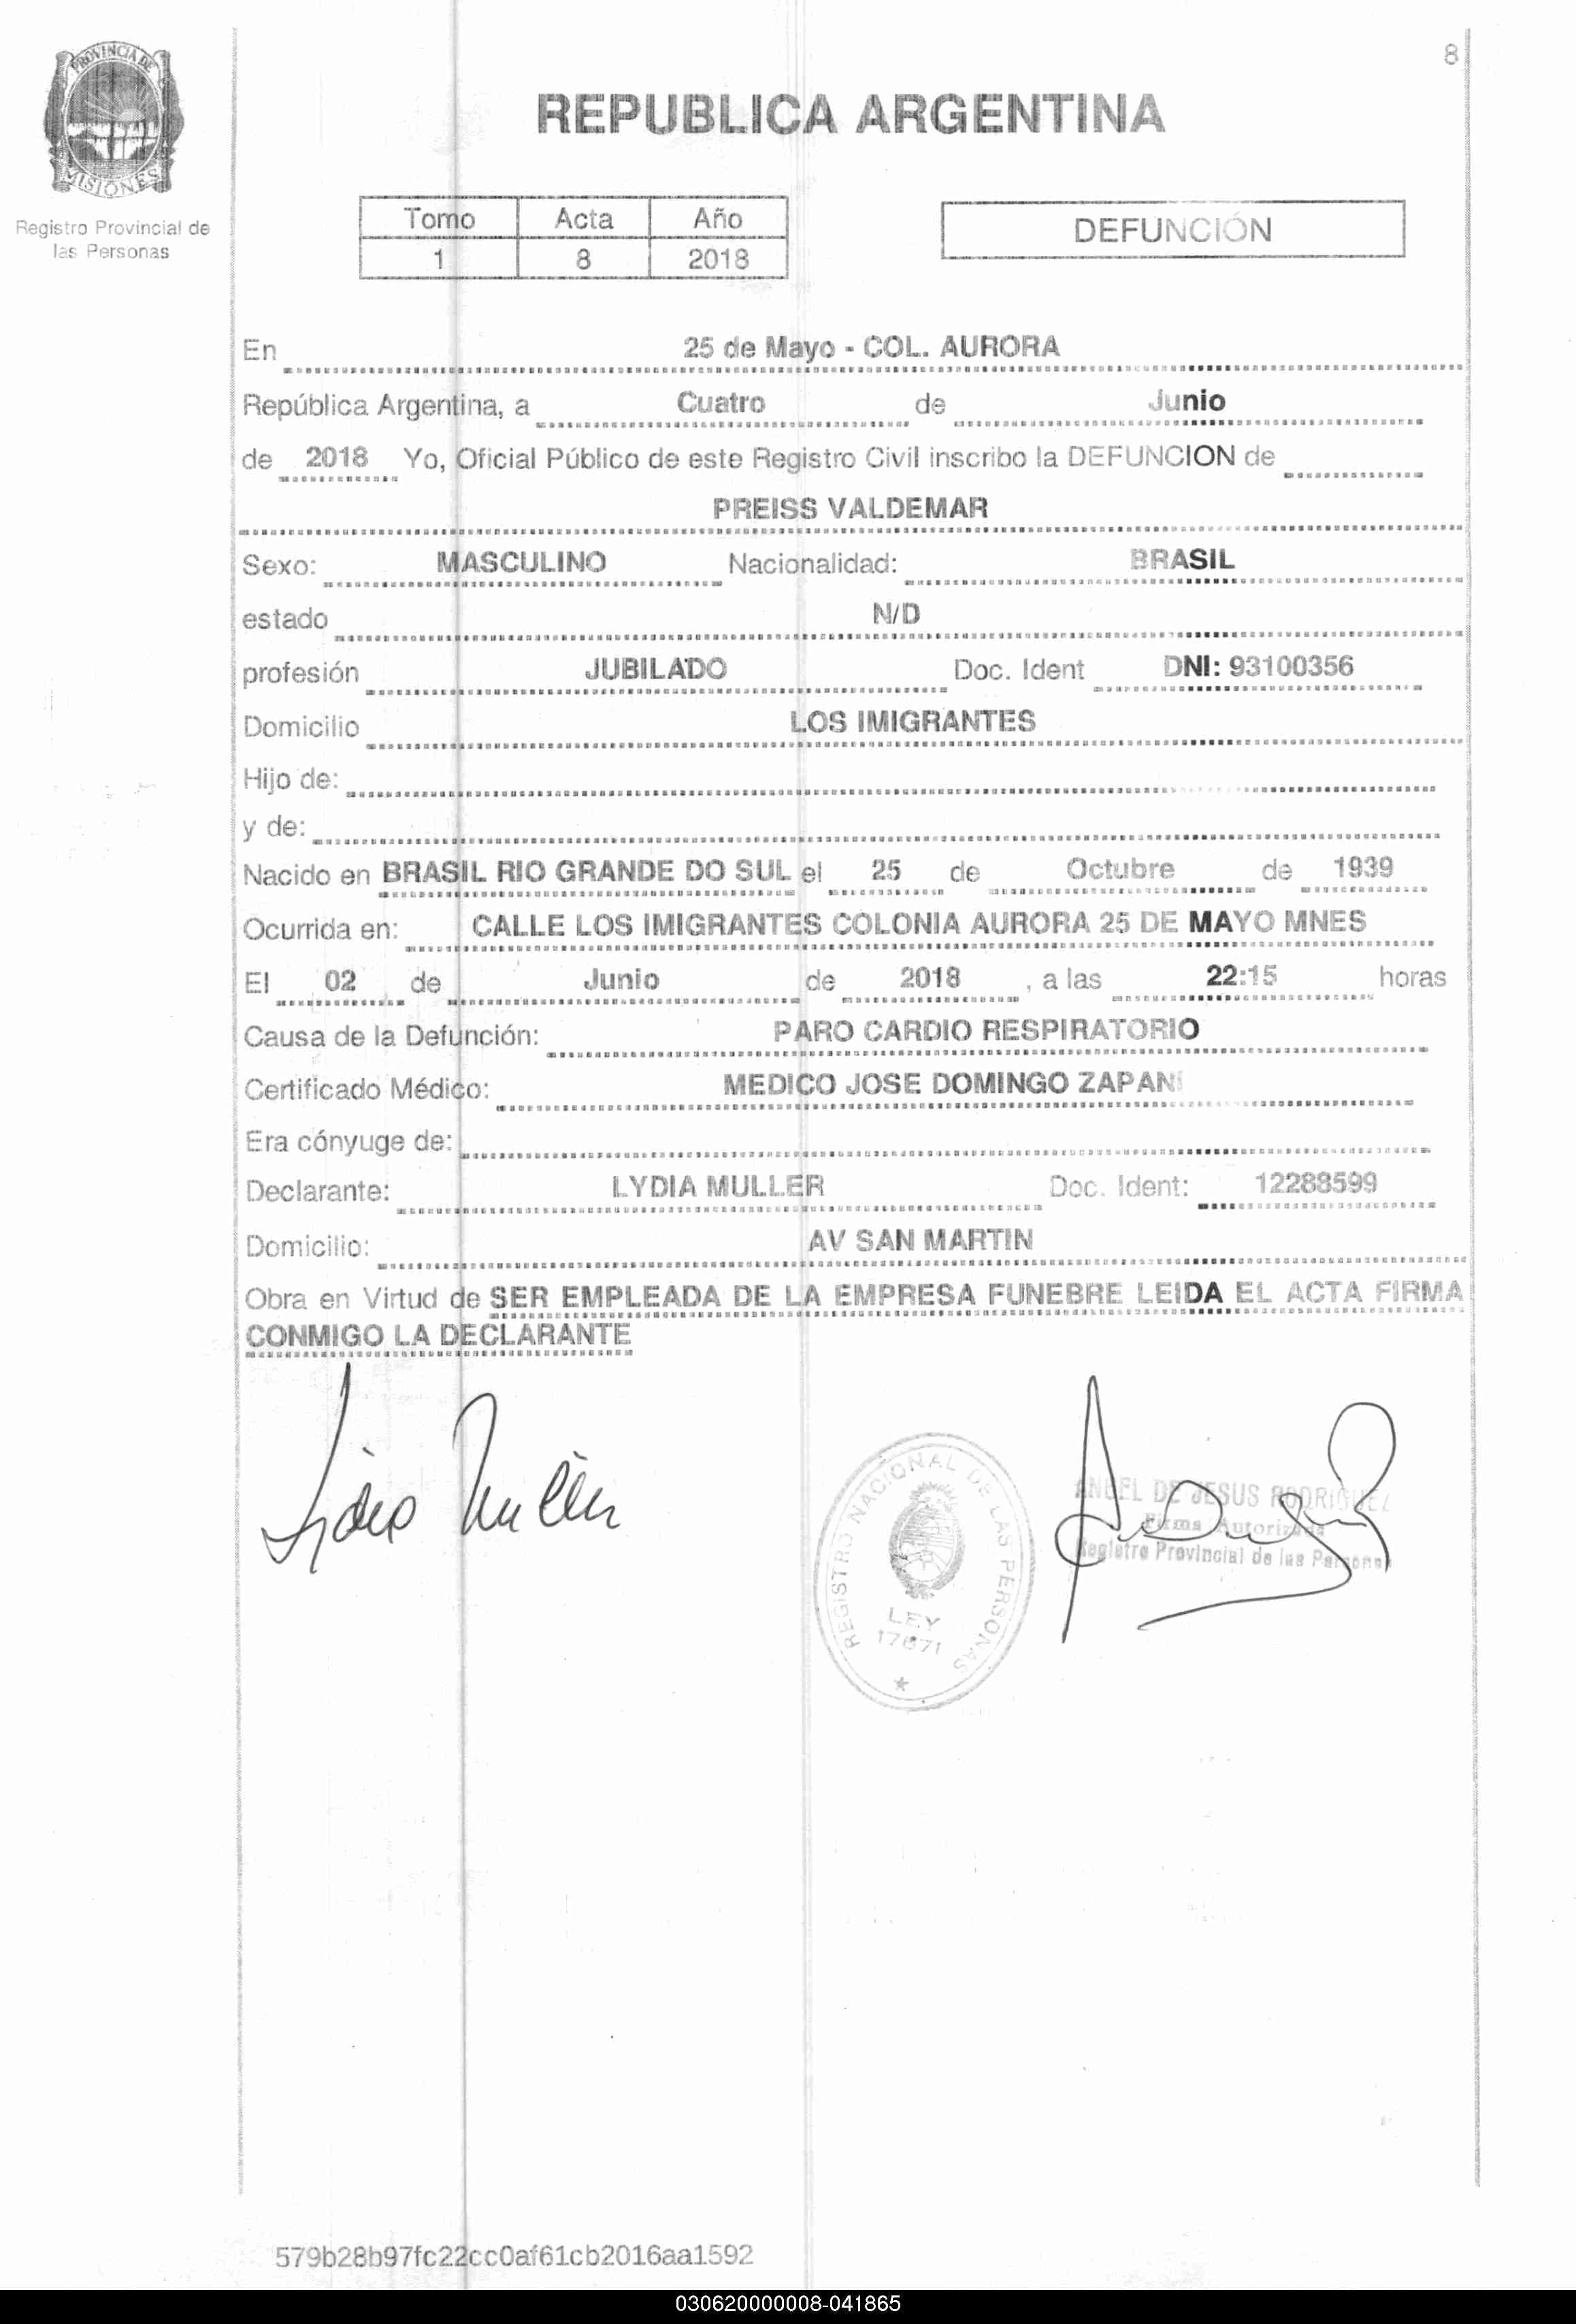 8
PROVINCIA DE
MISIONES
Registro Provincial de
las Personas
REPUBLICA ARGENTINA
Tomo Acta Año
1 8 2018
DEFUNCIÓN
En 25 de Mayo - COL. AURORA
República Argentina, a Cuatro de Junio
de 2018 Yo, Oficial Público de este Registro Civil inscribo la DEFUNCION de
PREISS VALDEMAR
Sexo: MASCULINO Nacionalidad: BRASIL
estado N/D
profesión JUBILADO Doc. Ident DNI: 93100356
Domicilio LOS IMIGRANTES
Hijo de:
y de:
Nacido en BRASIL RIO GRANDE DO SUL el 25 de Octubre de 1939
Ocurrida en: CALLE LOS IMIGRANTES COLONIA AURORA 25 DE MAYO MNES
El 02 de Junio de 2018 , a las 22:15 horas
Causa de la Defunción: PARO CARDIO RESPIRATORIO
Certificado Médico: MEDICO JOSE DOMINGO ZAPANI
Era cónyuge de:
Declarante: LYDIA MULLER Doc. Ident: 12288599
Domicilio: AV SAN MARTIN
Obra en Virtud de SER EMPLEADA DE LA EMPRESA FUNEBRE LEIDA EL ACTA FIRMA
CONMIGO LA DECLARANTE
REGISTRO NACIONAL DE LAS PERSONAS
LEY
17671
ANGEL DE JESUS RODRIGUEZ
Firma Autorizada
Registro Provincial de las Personas
579b28b97fc22cc0af61cb2016aa1592
030620000008-041865